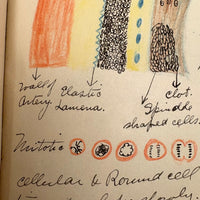 Wall of Elastic
Artery. Lamena.
Clot.
Spindle
shaped cells.
Mitotic
cellular & Round cell